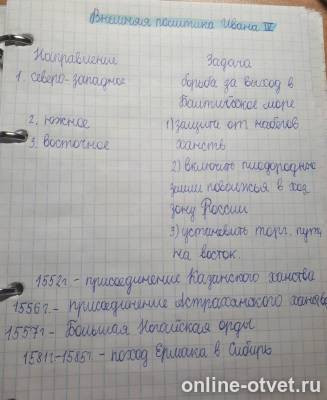 Внешняя политика Ивана IV
Направление Задача
1. северо-западное борьба за выход в
Балтийское море
2. южное 1) защита от набегов
3. восточное ханств
2) включить плодородные
земли поволжья в хоз
зону России
3) установить торг. пути
на восток.
1552г. - присоединение Казанского ханства
1556г. - присоединение Астраханского ханства
1557г - Большая Ногайская орды
1581г-1585г. - поход Ермака в Сибирь
online-otvet.ru